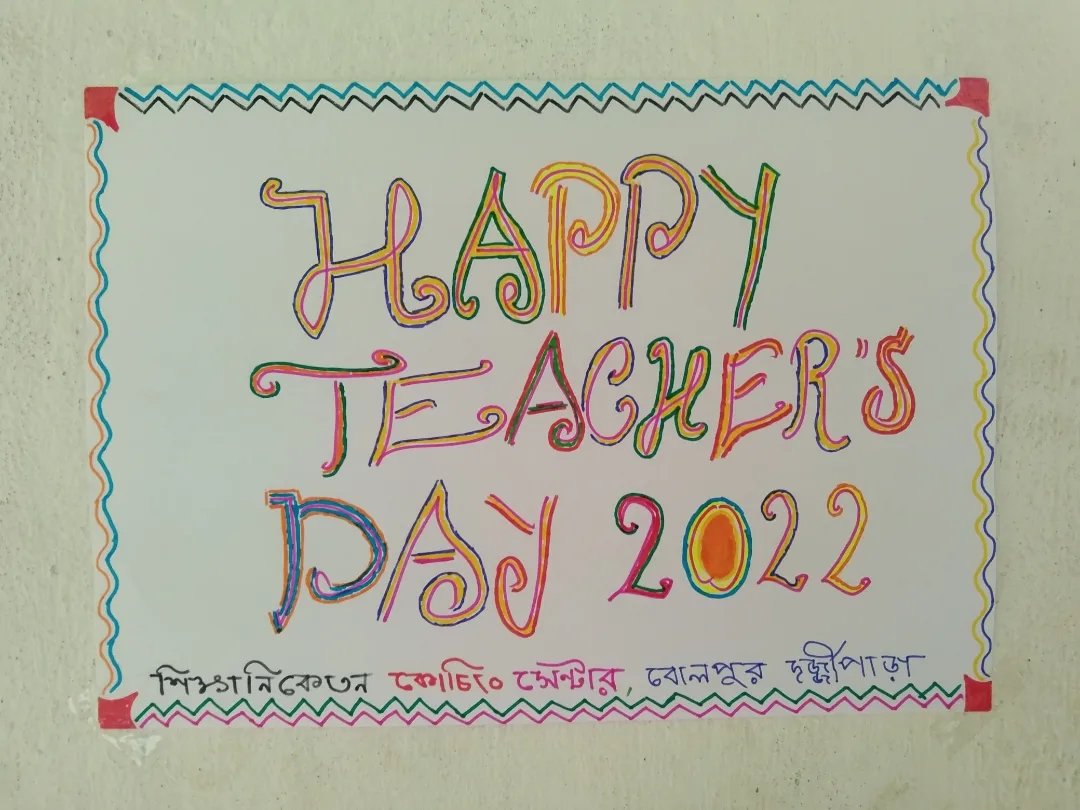 HAPPY
TEACHER"S
DAY 2022
শিক্ষানিকেতন কোচিং সেন্টার, বোলপুর দর্জ্জীপাড়া